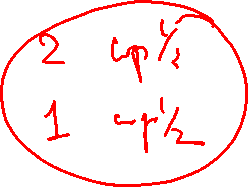 2 wp 1/2
1 wp 1/2